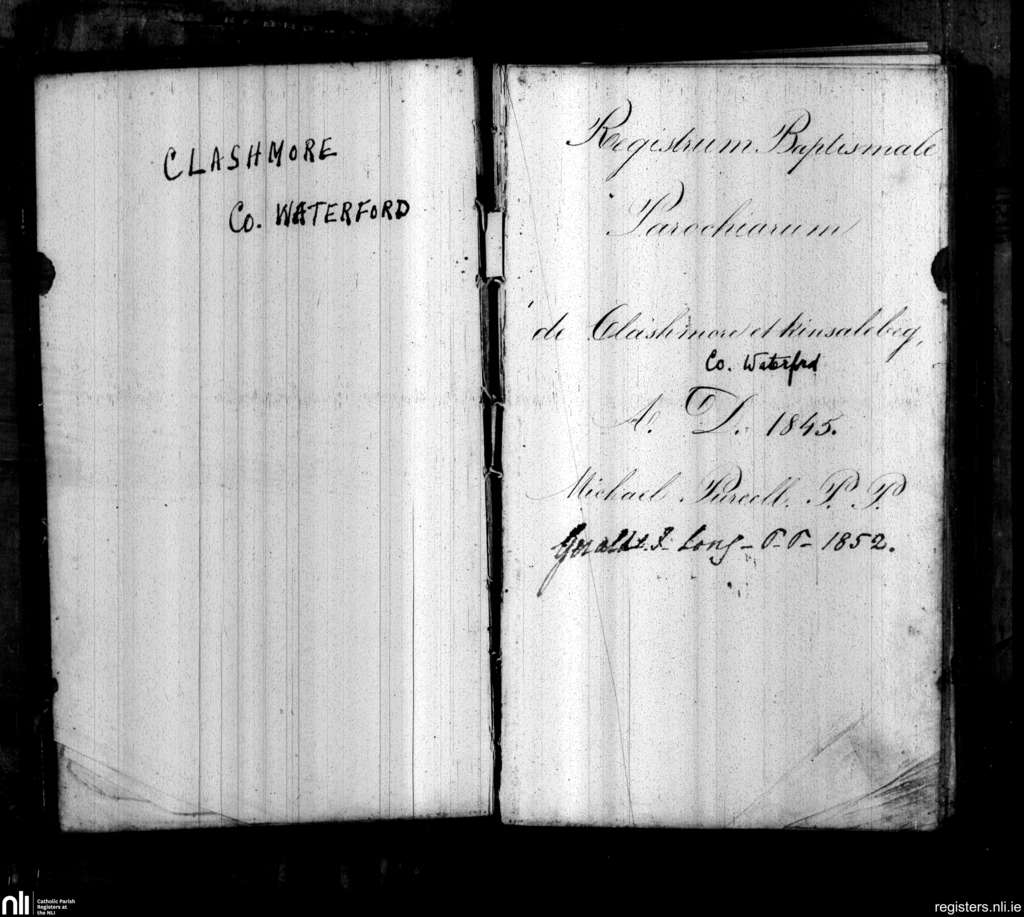 CLASHMORE
Co. WATERFORD
Registrum Baptismale
Parochiarum
de Clashmore et Kinsalebeg,
Co. Waterford
A. D. 1845.
Michael Purcell. P. P.
Long - P. P. - 1852.
nli
Catholic Parish
Registers at
the NLI
registers.nli.ie